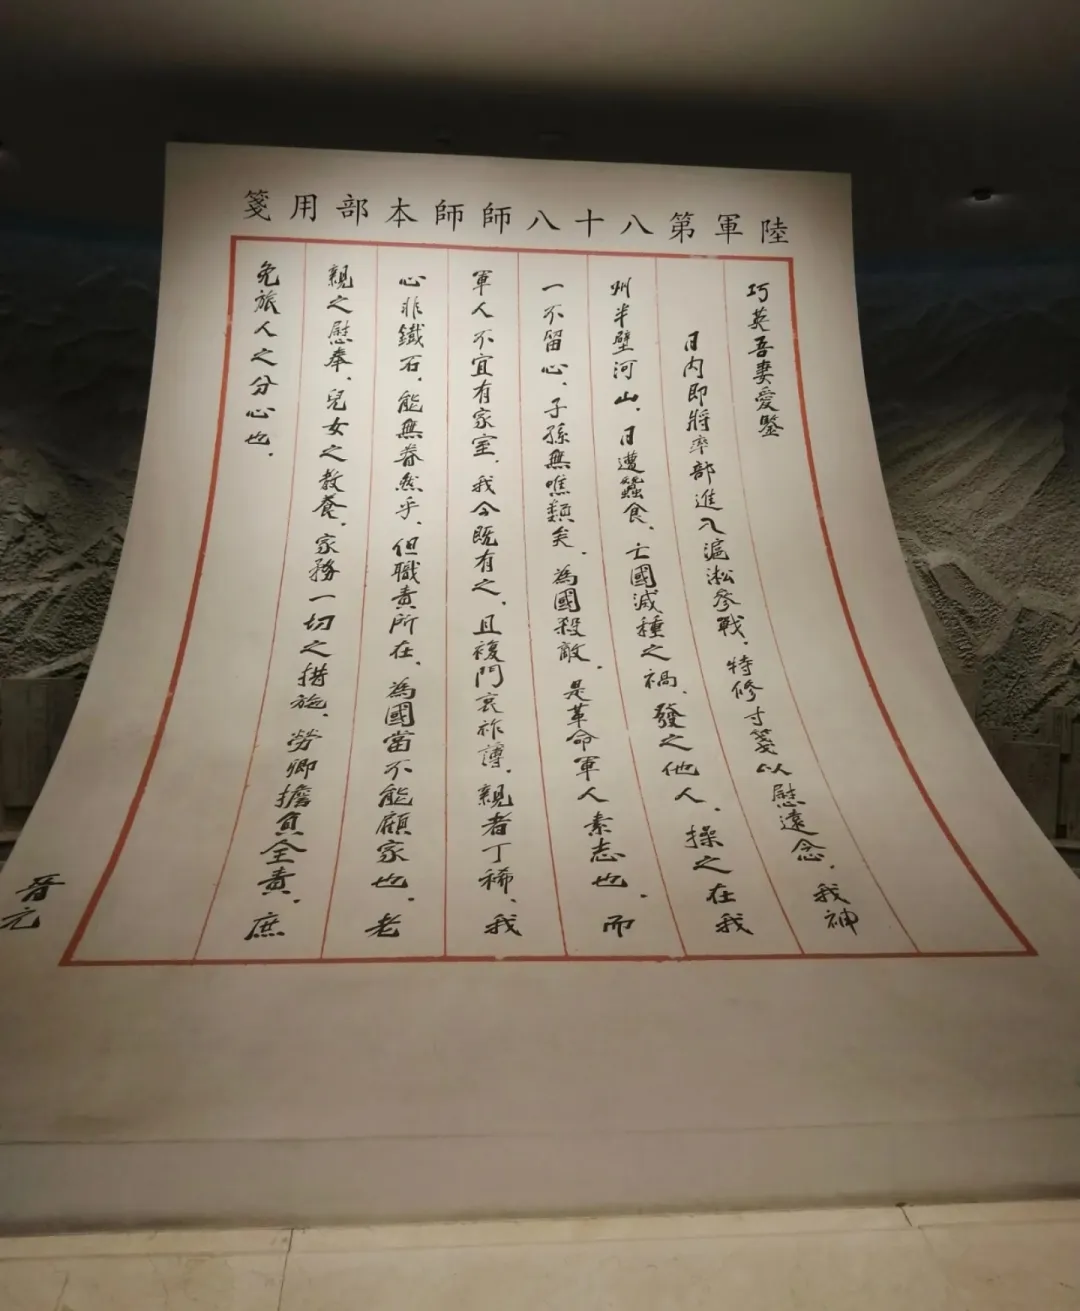 陸軍第八十八師師本部用箋
巧英吾妻愛鑒
日内即將率部進入滬淞參戰，特修寸箋以慰遠念，我神
州半壁河山，日遭蠶食，亡國滅種之禍，發之他人，操之在我
一不留心，子孫無噍類矣，為國殺敵，是革命軍人素志也，而
軍人不宜有家室，我今既有之，且複門衰祚薄，親者丁稀，我
心非鐵石，能無眷然乎，但職責所在，為國當不能顧家也，老
親之慰奉，兒女之教養，家務一切之措施，勞卿擔負全責，庶
免旅人之分心也，
晉元